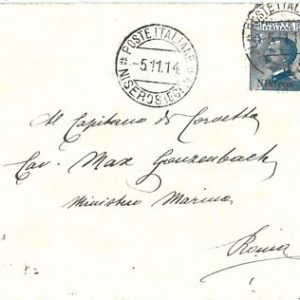 POSTE ITALIANE
-5.11.14
NISEROS (EGEO)
POSTE ITALIA
Nisiros
Al Capitano di Corvetta
Cav. Max Gonzenbach
Ministero Marina
Roma